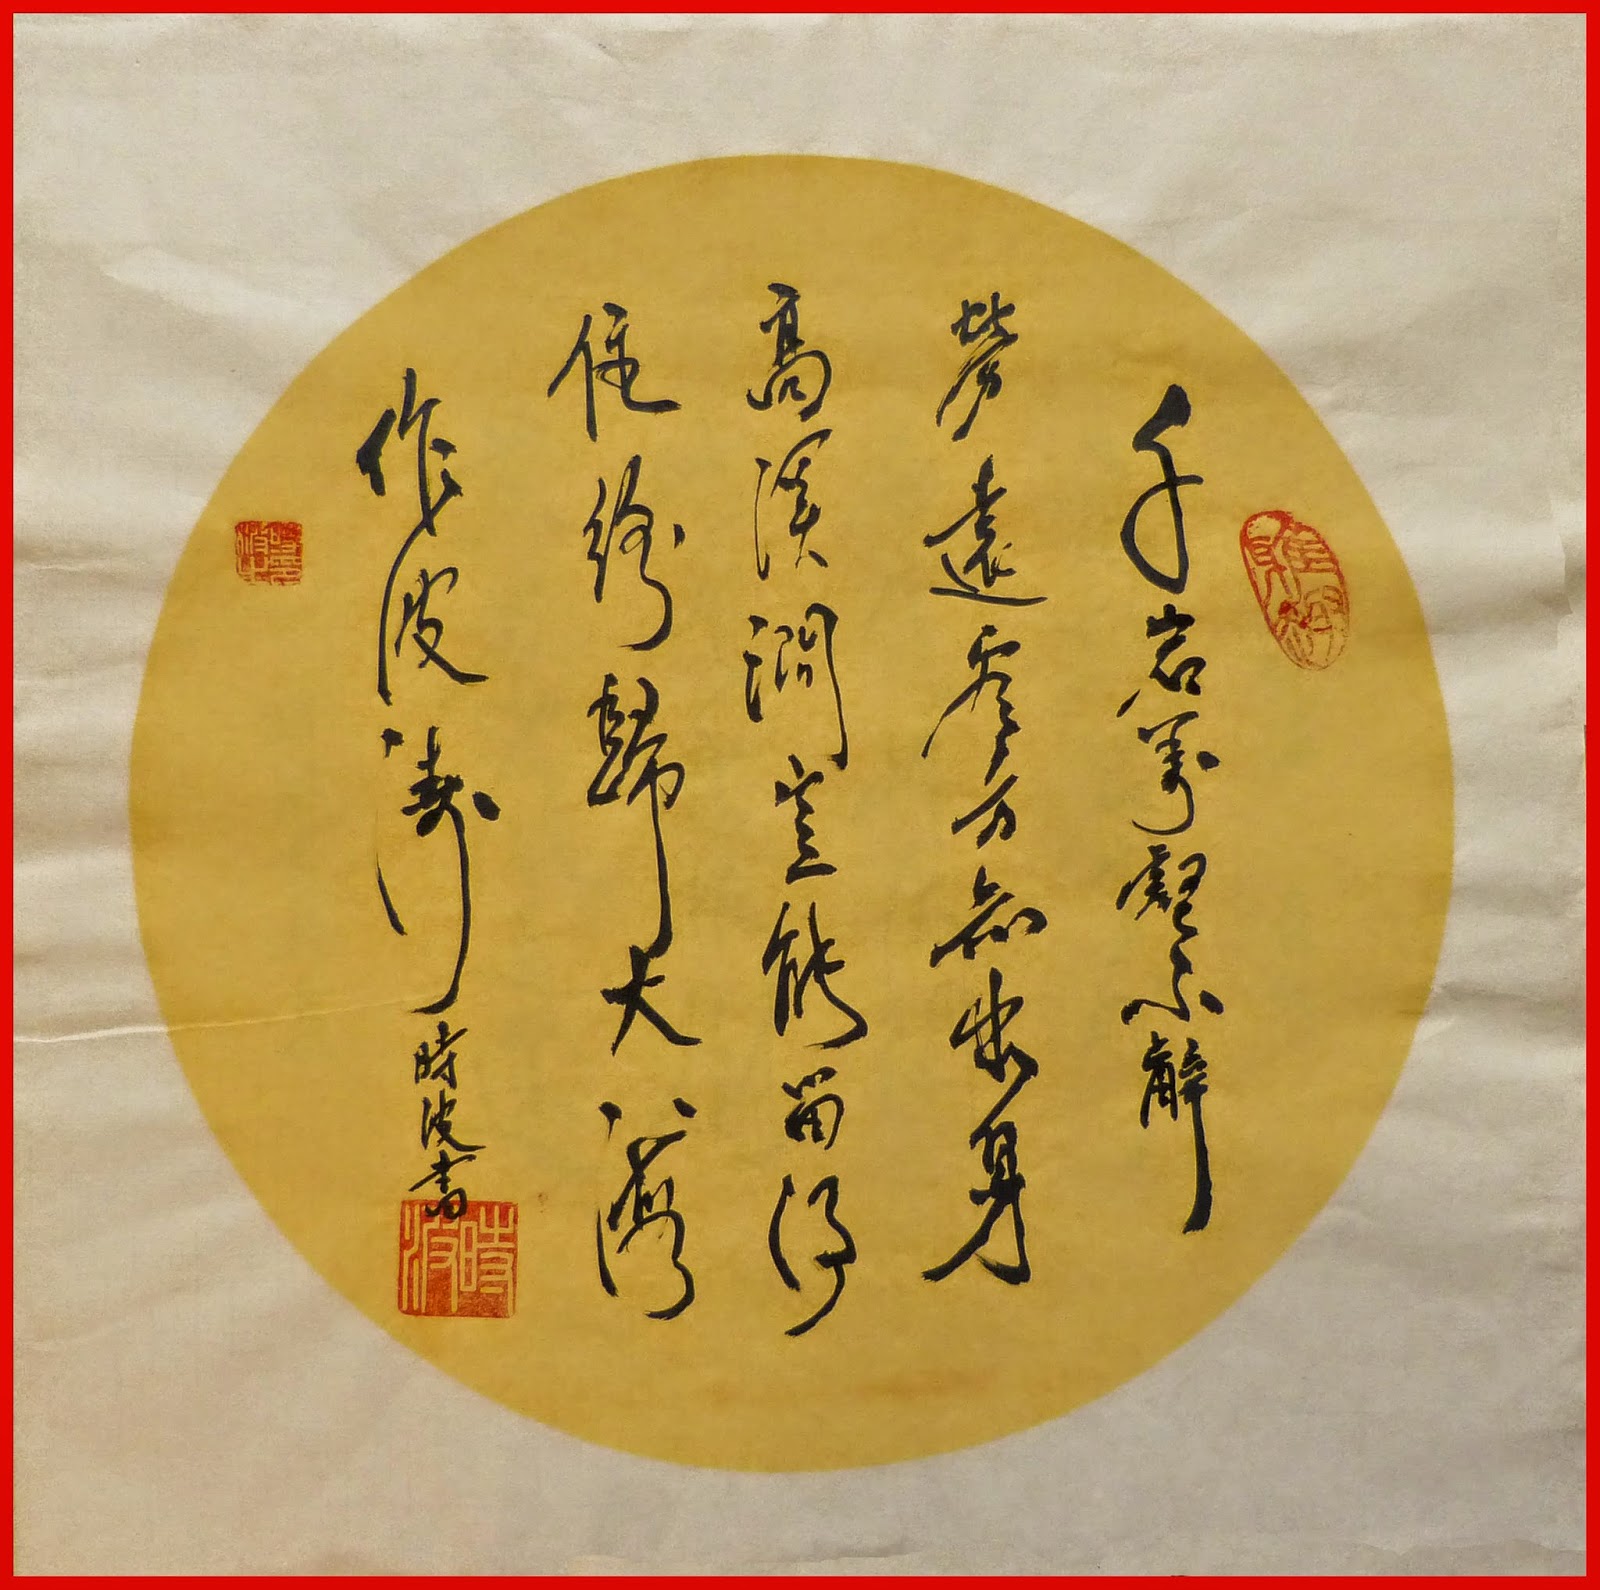 千岩萬壑不辭
勞遠處方知出身
高溪澗豈能留得
住終歸大海
作波濤
時波書
時波